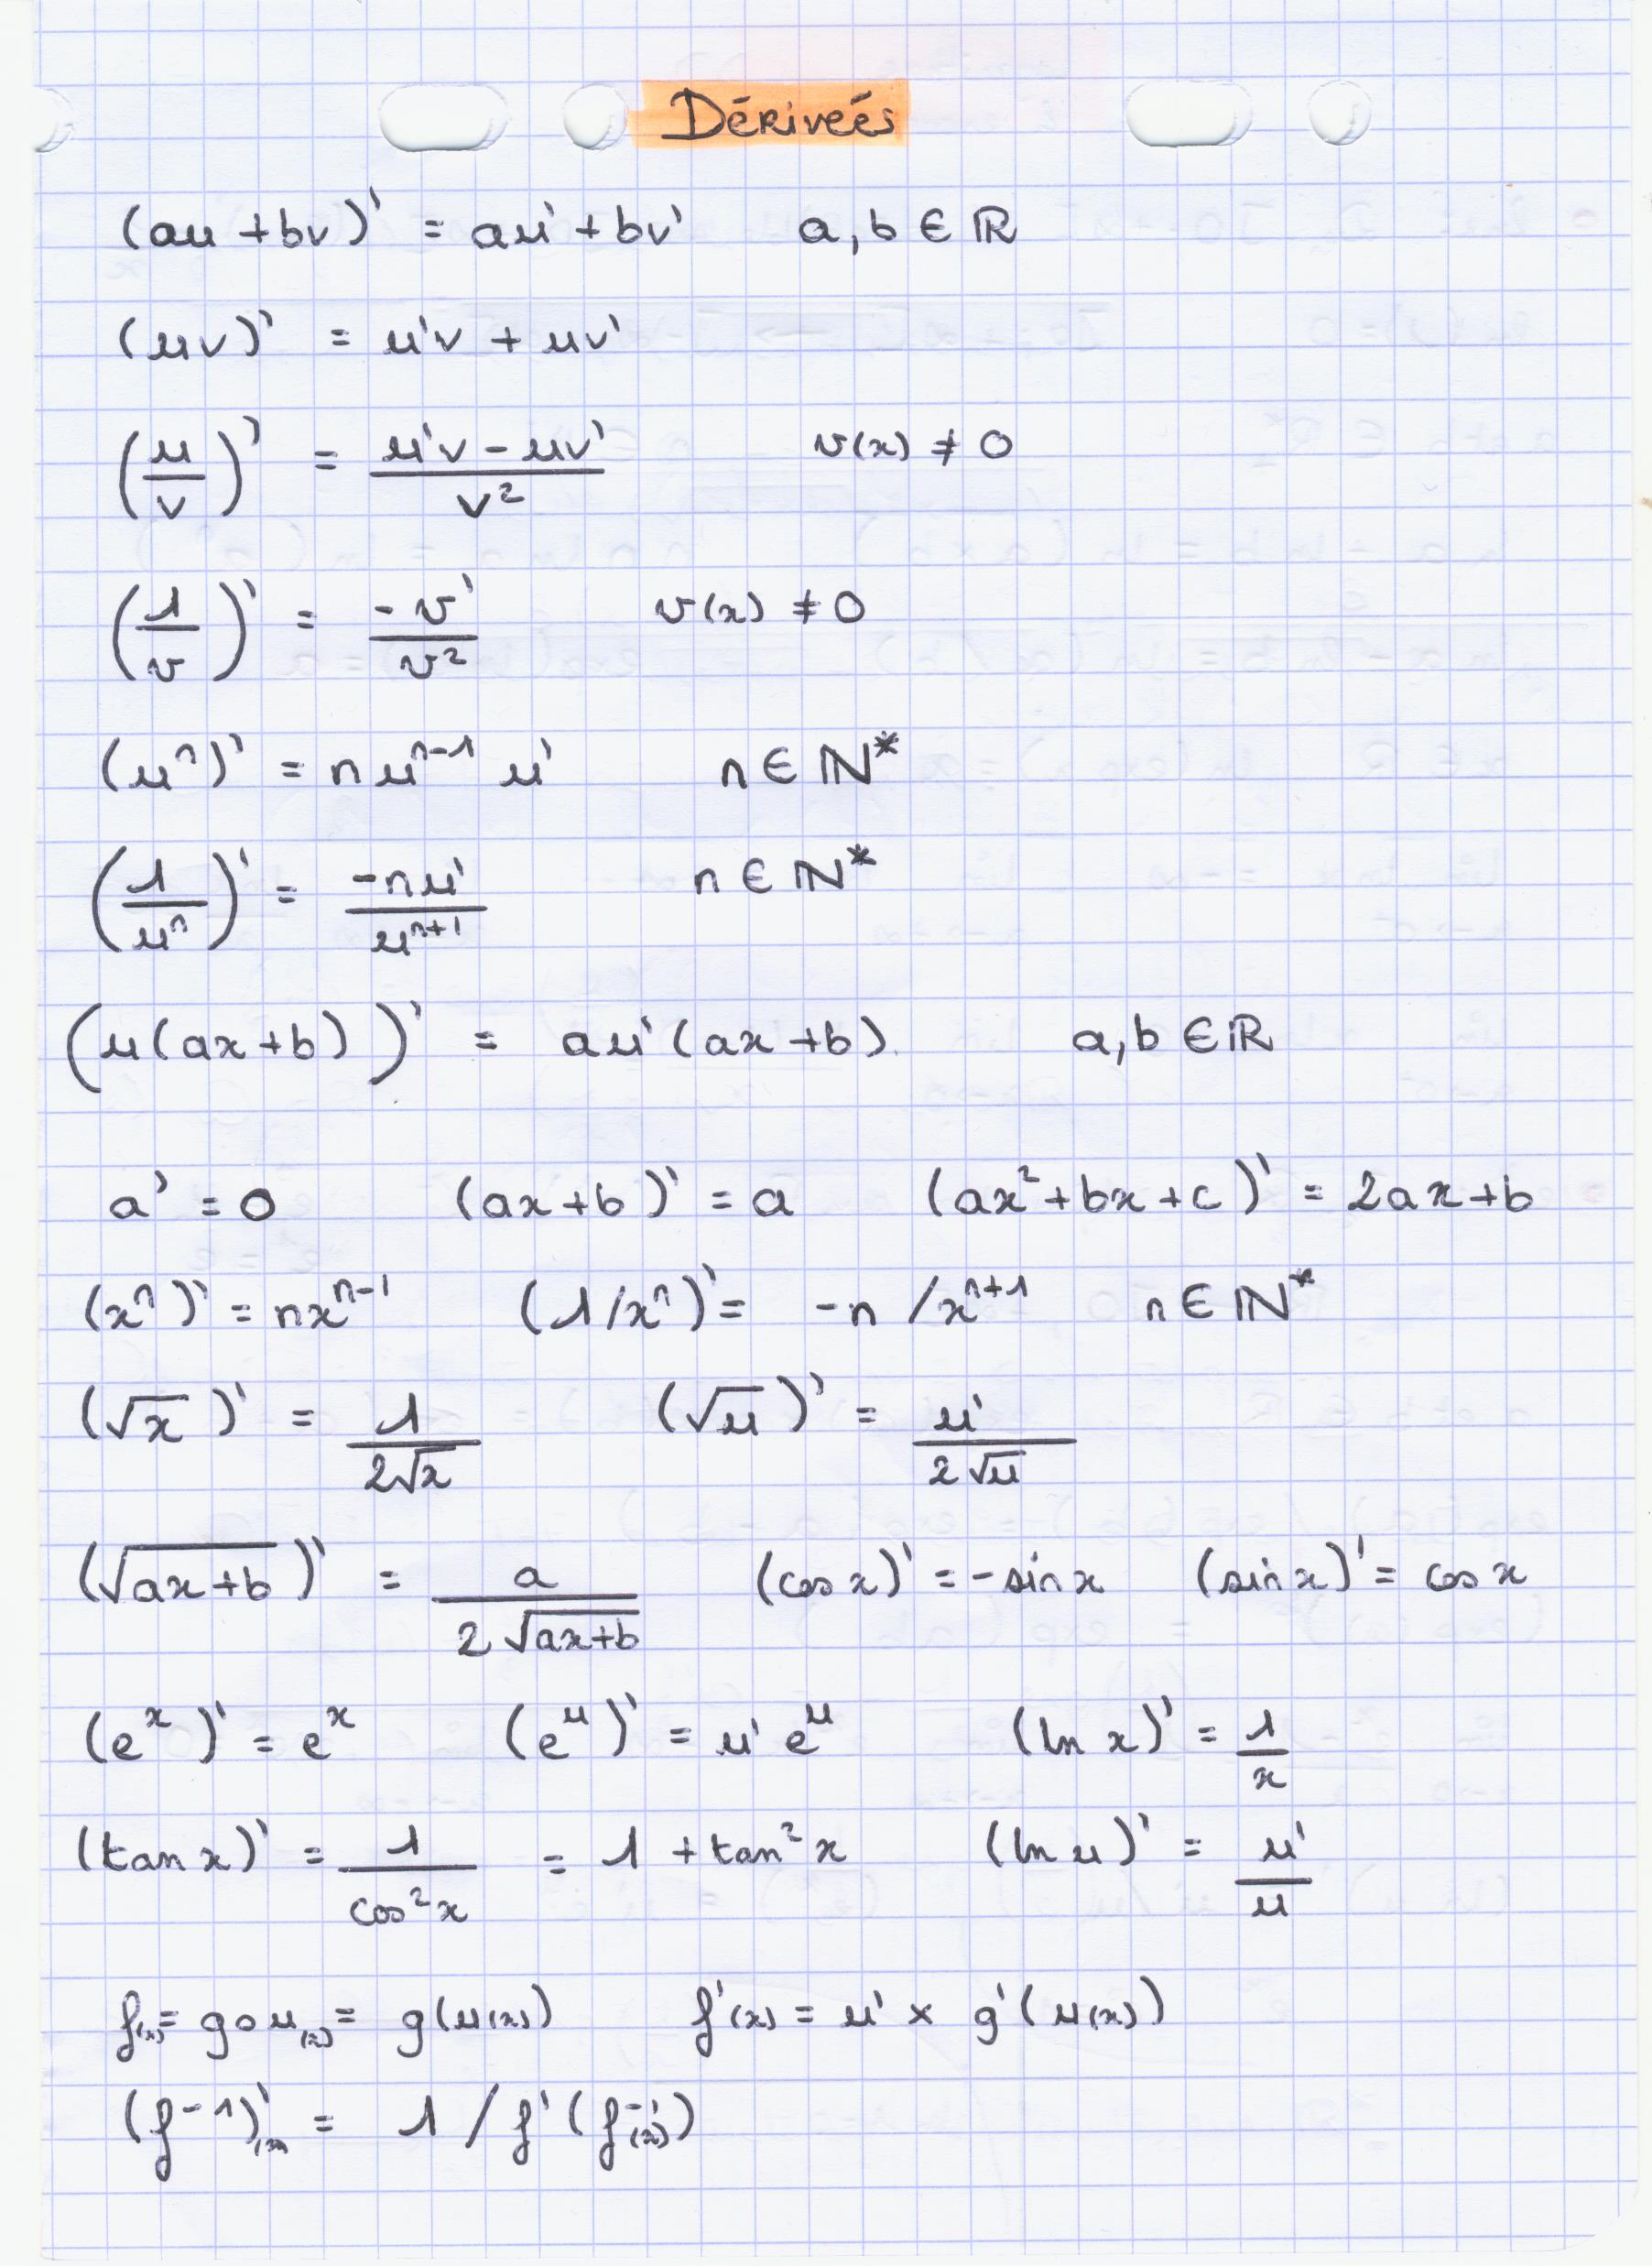 Dérivées
(au + bv)' = au' + bv' a, b ∈ ℝ
(uv)' = u'v + uv'
(u/v)' = (u'v - uv')/v² v(x) ≠ 0
(1/v)' = -v'/v² v(x) ≠ 0
(uⁿ)' = n uⁿ⁻¹ u' n ∈ ℕ*
(1/uⁿ)' = -nu'/uⁿ⁺¹ n ∈ ℕ*
(u(ax+b))' = au'(ax+b) a, b ∈ ℝ
a' = 0 (ax+b)' = a (ax²+bx+c)' = 2ax+b
(xⁿ)' = nxⁿ⁻¹ (1/xⁿ)' = -n/xⁿ⁺¹ n ∈ ℕ*
(√x)' = 1/(2√x) (√u)' = u'/(2√u)
(√(ax+b))' = a/(2√(ax+b)) (cos x)' = -sin x (sin x)' = cos x
(eˣ)' = eˣ (eᵘ)' = u' eᵘ (ln x)' = 1/x
(tan x)' = 1/cos²x = 1 + tan²x (ln u)' = u'/u
f(x) = g∘u(x) = g(u(x)) f'(x) = u' × g'(u(x))
(f⁻¹)'(x) = 1 / f'(f⁻¹(x))